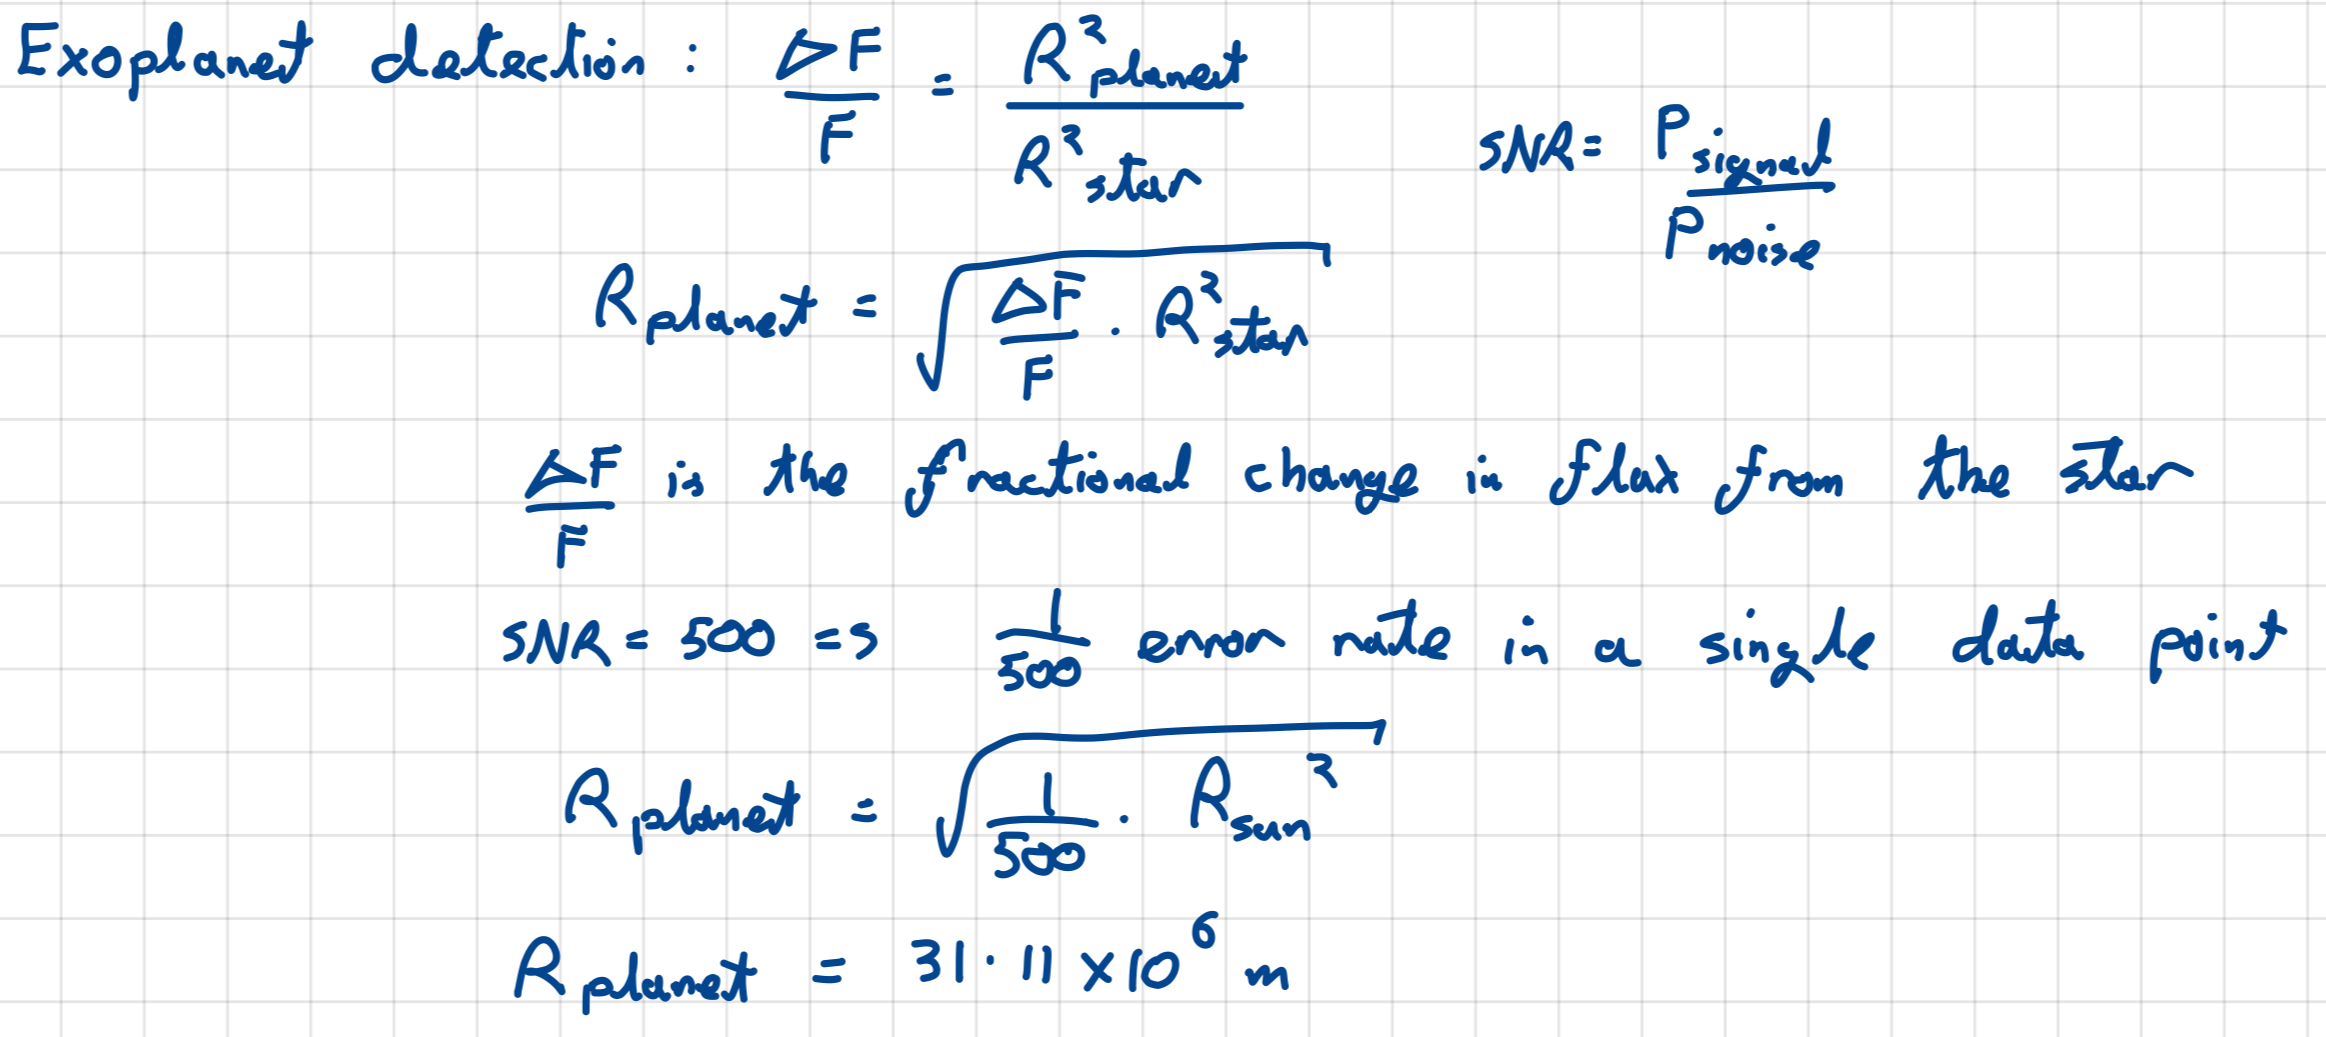 Exoplanet detection : ΔF/F = R²planet/R²star
SNR = Psignal/Pnoise
Rplanet = √(ΔF/F · R²star)
ΔF/F is the fractional change in flux from the star
SNR = 500 => 1/500 error rate in a single data point
Rplanet = √(1/500 · Rsun²)
Rplanet = 31.11 × 10⁶ m